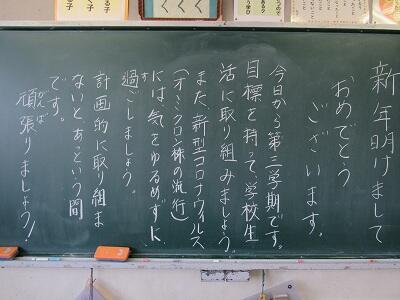 新年明けまして
おめでとう
ございます。
今日から第三学期です。
目標を持って、学校生
活に取り組みましょう。
また、新型コロナウィルス
(オミクロン株の流行)
には、気をゆるめずに
過ごしましょう。
す
計画的に取り組ま
ないとあっという間
です。
頑張りましょう!
がんば
る子
る子
くくく